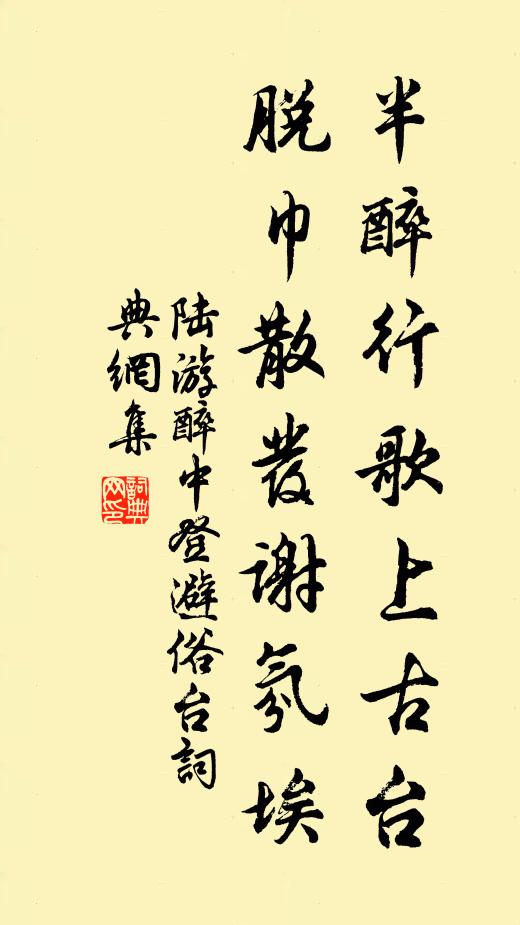 半醉行歌上古台
脱巾散發谢氛埃
陆游醉中登避俗台詞
典網集
詞典
网印